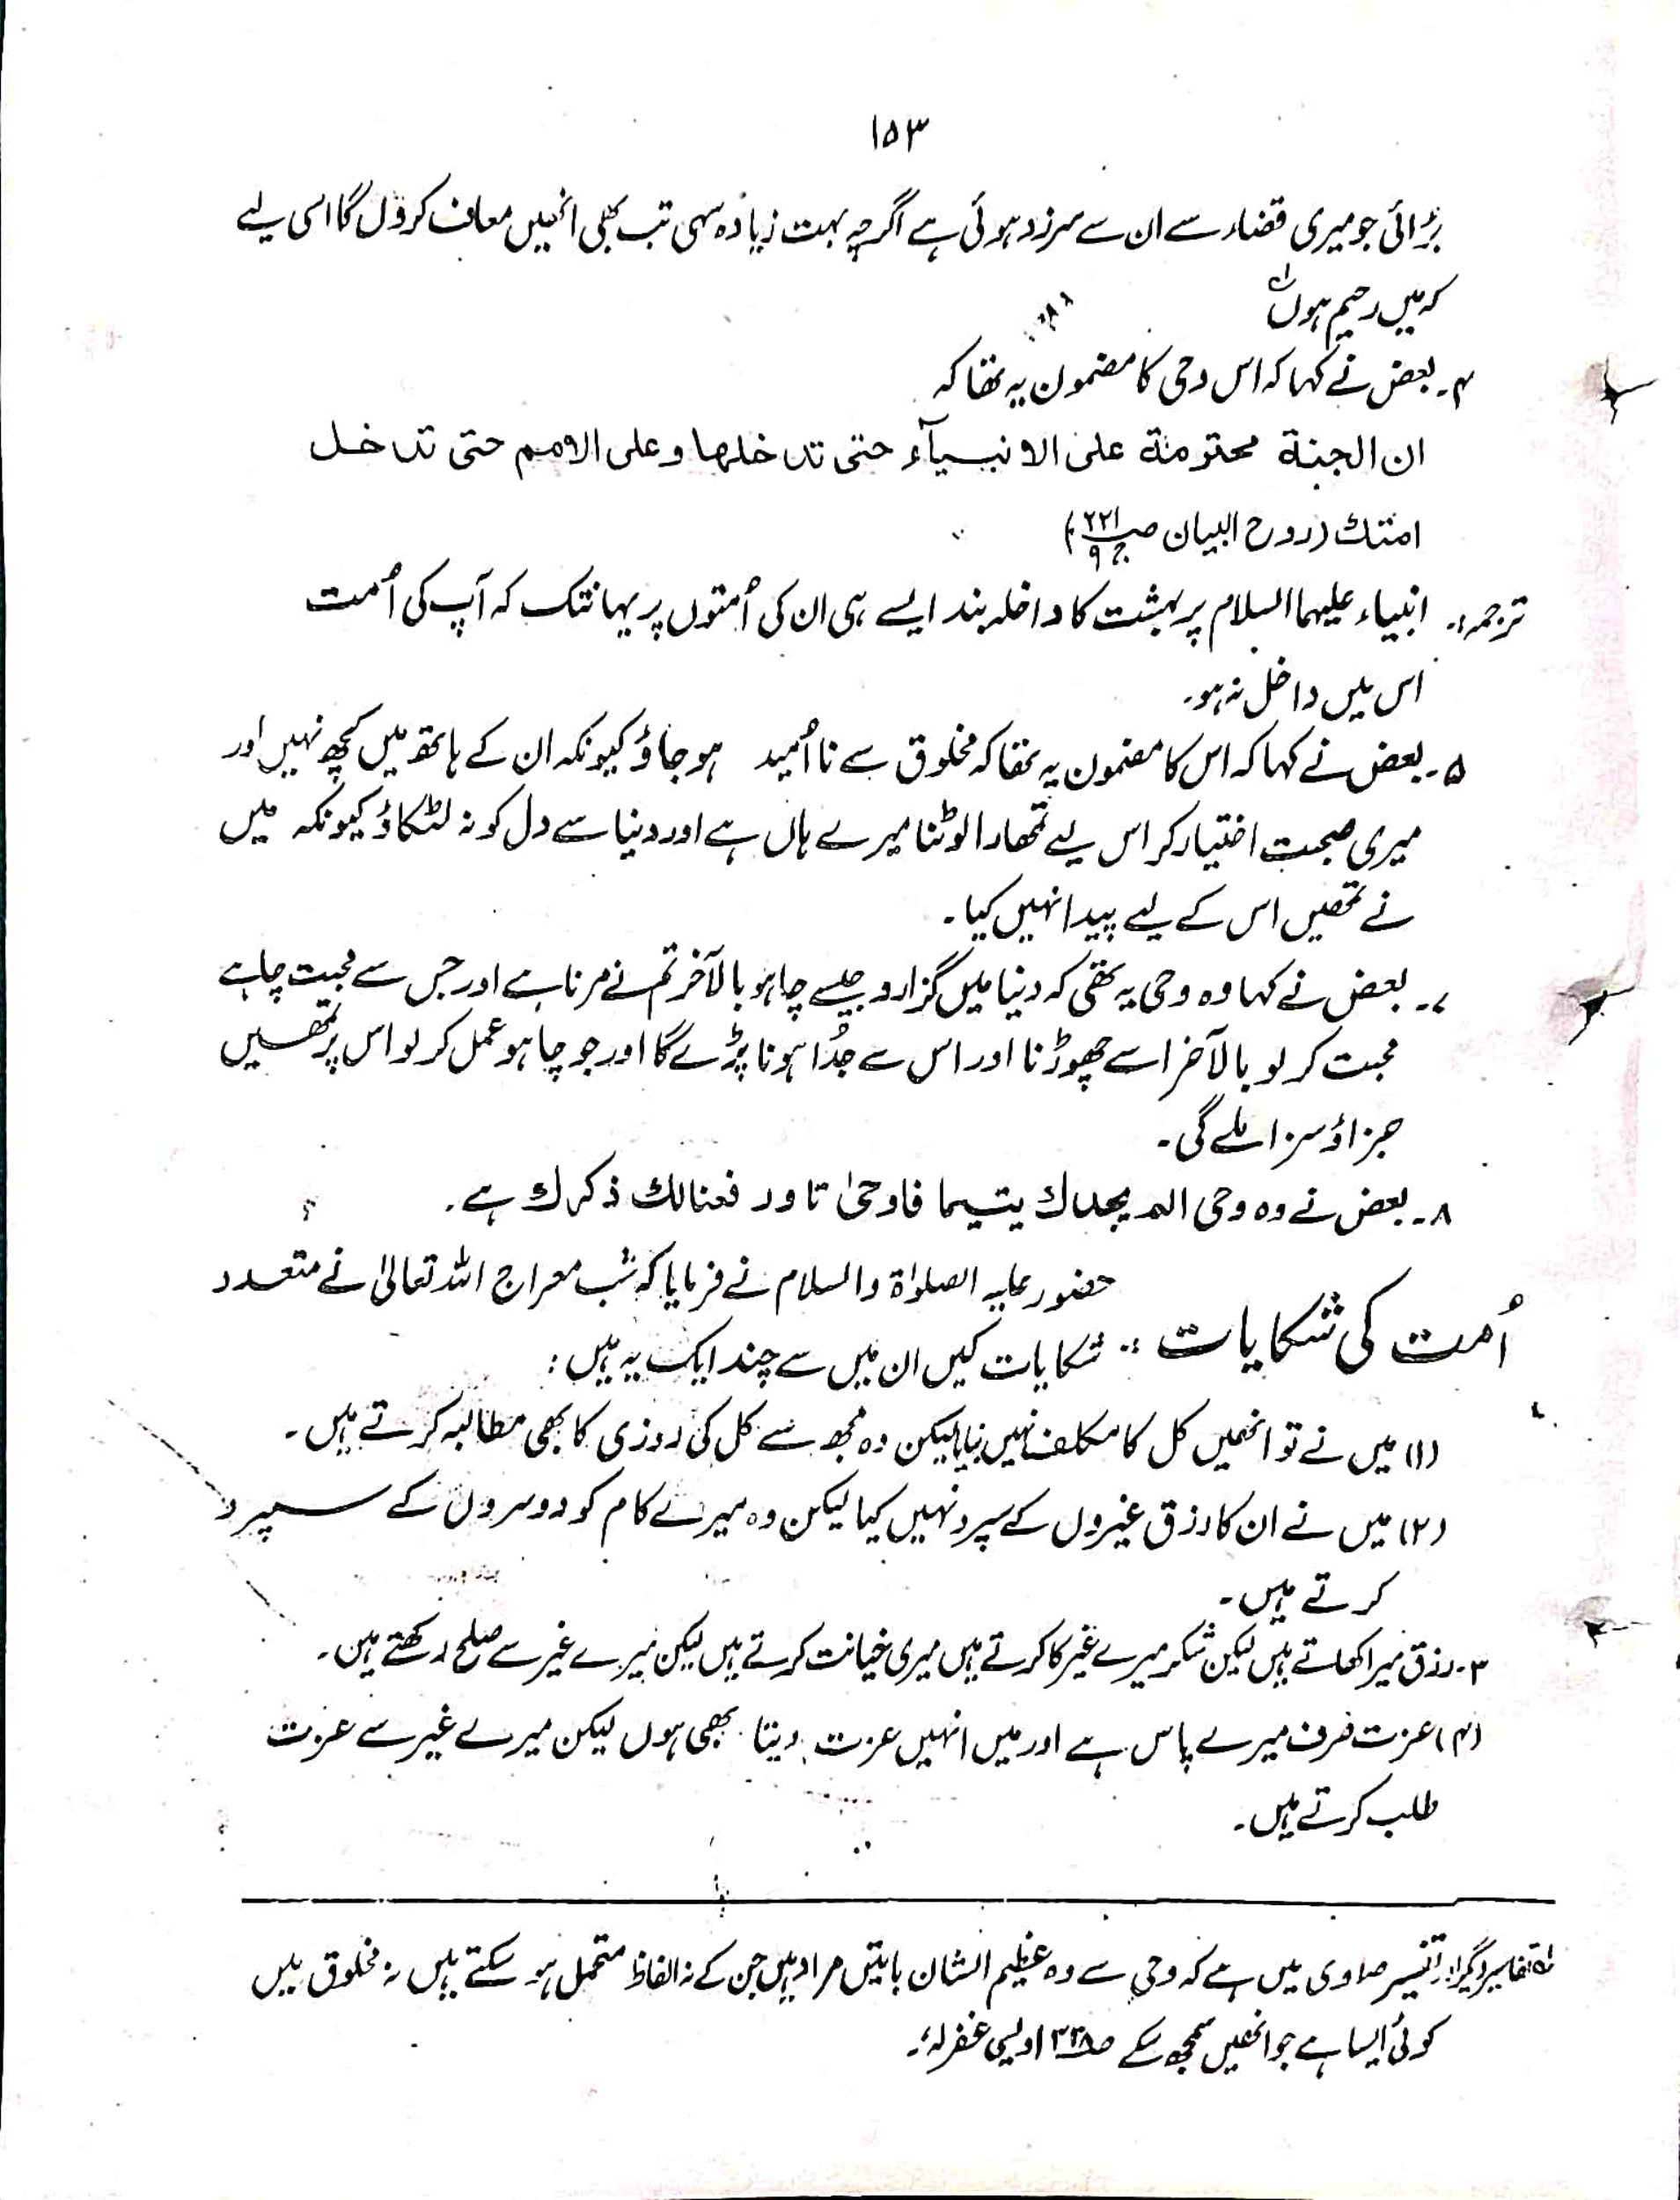 ۱۵۳
بڑائی جو میری قضاء سے ان سے سرزد ہوئی ہے اگرچہ بہت زیادہ سہی تب بھی انھیں معاف کروں گا اسی لیے
کہ میں رحیم ہوں
۴۔ بعض نے کہا کہ اس وحی کا مضمون یہ تھا کہ
ان الجنة محتومة على الانبيآء حتى تدخلها وعلى الامم حتى تدخل
امتك (روح البیان ص ۲۲۱ ج ۹)
ترجمہ:۔ انبیاء علیہما السلام پر بہشت کا داخلہ بند ایسے ہی ان کی اُمتوں پر یہانتک کہ آپ کی اُمت
اس میں داخل نہ ہو۔
۵۔ بعض نے کہا کہ اس کا مضمون یہ تھا کہ مخلوق سے نا اُمید ہو جاؤ کیونکہ ان کے ہاتھ میں کچھ نہیں اور
میری صحبت اختیار کر اس لیے تمھارا لوٹنا میرے ہاں ہے اور دنیا سے دل کو نہ لٹکاؤ کیونکہ میں
نے تمھیں اس کے لیے پیدا نہیں کیا۔
۷۔ بعض نے کہا وہ وحی یہ تھی کہ دنیا میں گزارو جیسے چاہو بالآخر تم نے مرنا ہے اور جس سے محبت چاہے
محبت کر لو بالآخر اسے چھوڑنا اور اس سے جُدا ہونا پڑے گا اور جو چاہو عمل کر لو اس پر تمھیں
جزاؤ سزا ملے گی۔
۸۔ بعض نے وہ وحی الم یجدك یتیما فاوحیٰ تا ورفعنالك ذکرك ہے۔
حضور علیہ الصلوٰة والسلام نے فرمایا کہ شب معراج اللہ تعالیٰ نے متعدد
اُمت کی شکایات :۔ شکایات کیں ان میں سے چند ایک یہ ہیں:
(۱) میں نے تو انھیں کل کا مکلف نہیں بنایا لیکن وہ مجھ سے کل کی روزی کا بھی مطالبہ کرتے ہیں۔
(۲) میں نے ان کا رزق غیروں کے سپرد نہیں کیا لیکن وہ میرے کام کو دوسروں کے سپرد
کرتے ہیں۔
۳۔ رزق میرا کھاتے ہیں لیکن شکر میرے غیر کا کرتے ہیں میری خیانت کرتے ہیں لیکن میرے غیر سے صلح رکھتے ہیں۔
(۴) عزت صرف میرے پاس ہے اور میں انہیں عزت دیتا بھی ہوں لیکن میرے غیر سے عزت
طلب کرتے ہیں۔
تفاسیر دیگر اور تفسیر صاوی میں ہے کہ وحی سے وہ عظیم الشان باتیں مراد ہیں جن کے نہ الفاظ متحمل ہو سکتے ہیں نہ مخلوق میں
کوئی ایسا ہے جو انھیں سمجھ سکے اویسی غفرلہٗ۔